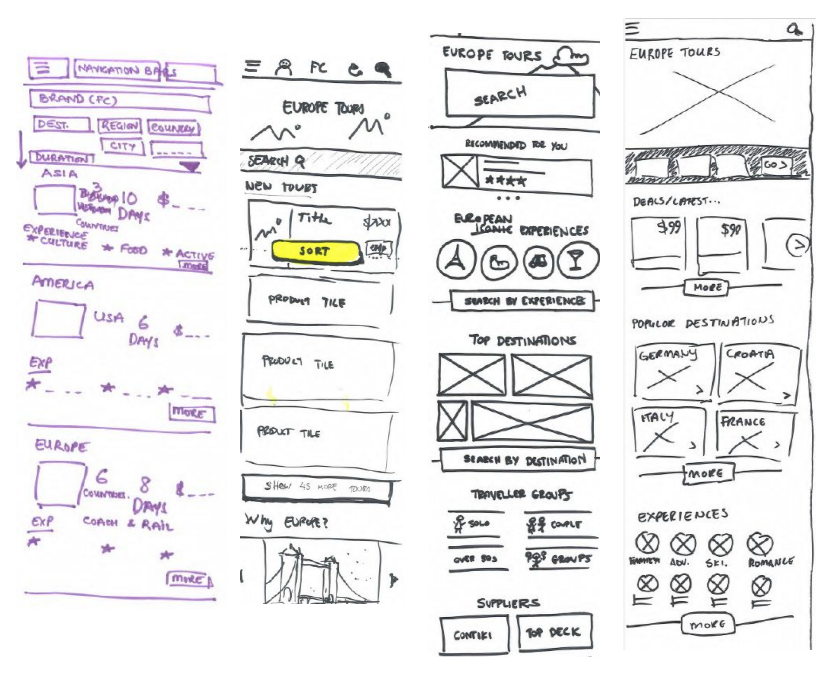 NAVIGATION BARS
BRAND (FC)
DEST. REGION COUNTRY
CITY
DURATION
ASIA
3 10 $---
DAYS
COUNTRIES
EXPERIENCE
* CULTURE * FOOD * ACTIVE
MORE
AMERICA
USA 6 $---
DAYS
EXP
MORE
EUROPE
6 8 $---
COUNTRIES. DAYS
EXP COACH & RAIL
MORE
FC
EUROPE TOURS
SEARCH
NEW TOURS
Title $xxx
SORT
PRODUCT TILE
PRODUCT TILE
PRODUCT TILE
SHOW 45 MORE TOURS
Why EUROPE?
EUROPE TOURS
SEARCH
RECOMMENDED FOR YOU
EUROPEAN
ICONIC EXPERIENCES
SEARCH BY EXPERIENCES
TOP DESTINATIONS
SEARCH BY DESTINATION
TRAVELLER GROUPS
SOLO COUPLE
OVER 50s GROUPS
SUPPLIERS
CONTIKI TOP DECK
EUROPE TOURS
GO >
DEALS/LATEST...
$99 $90
MORE
POPULAR DESTINATIONS
GERMANY CROATIA
ITALY FRANCE
MORE
EXPERIENCES
ADV. SKI. ROMANCE
MORE